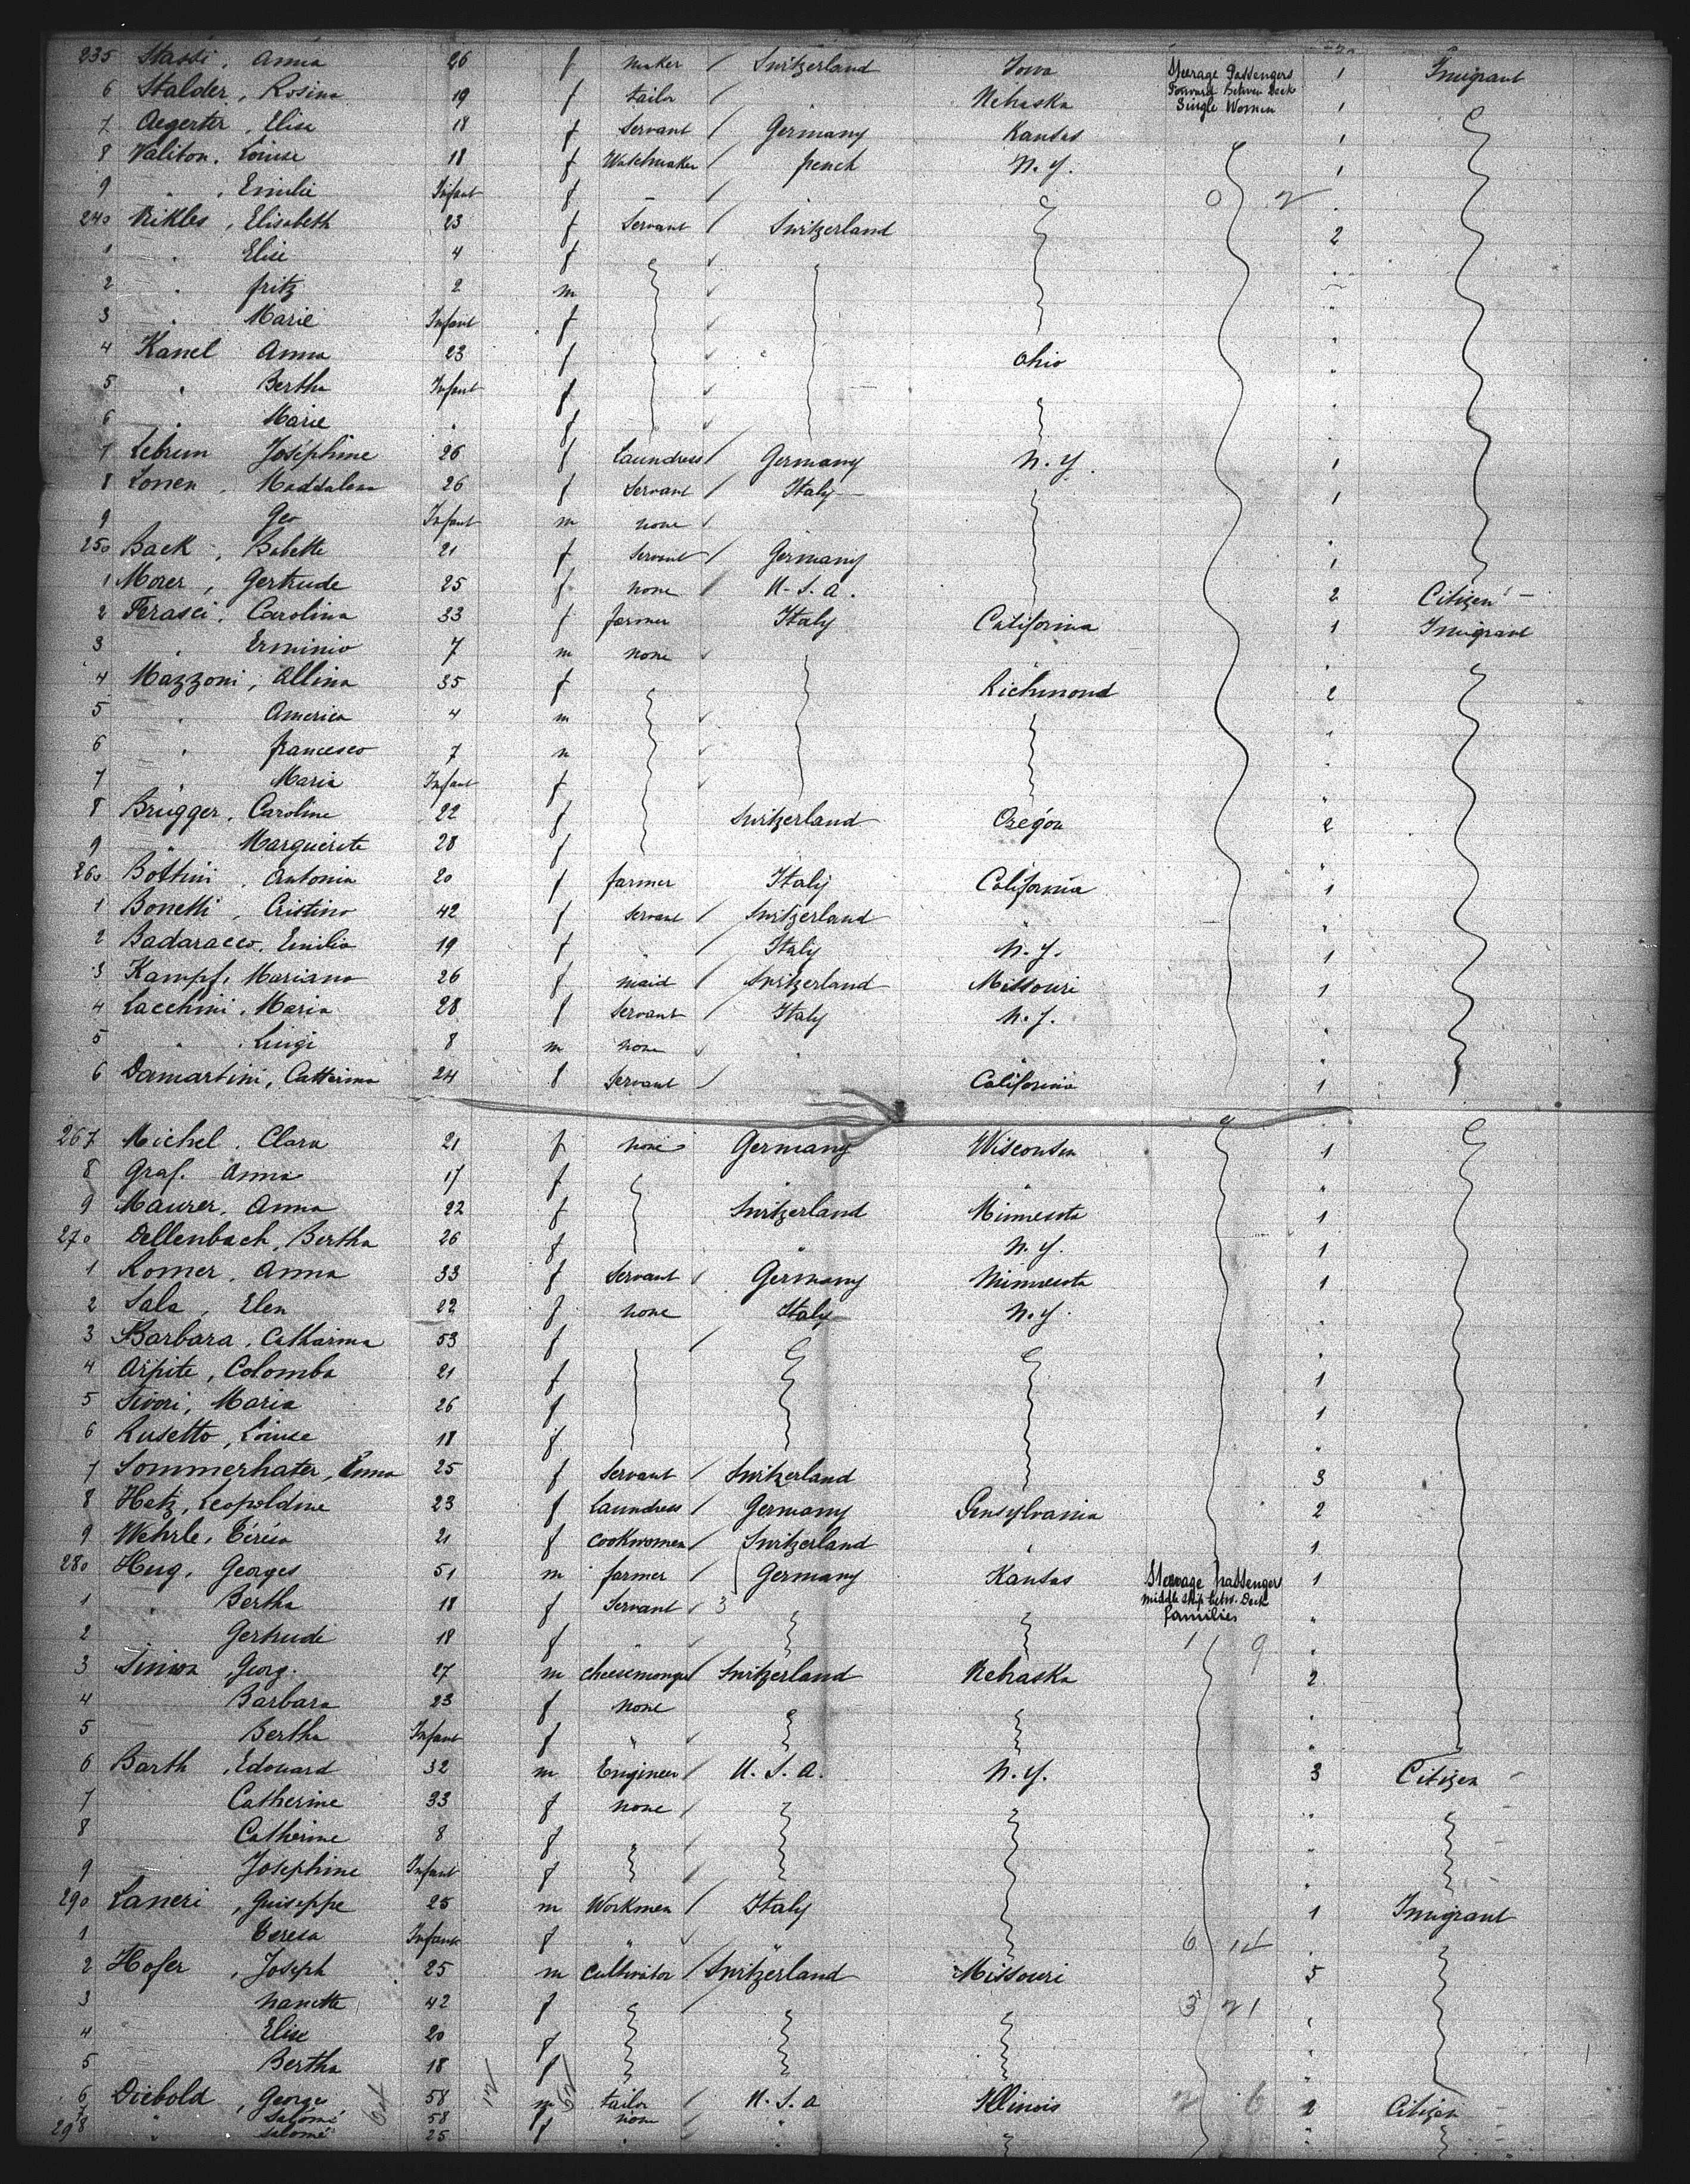 235 Stassi, Anna 26 f maker / Switzerland Iowa Steerage Passengers 1 Imigrant
6 Stalder, Rosina 19 f tailor / " Nebraska Forward Between Deck Single Women 1
7 Aegerter, Elise 18 f Servant / Germany Kansas 1
8 Valiton, Louise 18 f Watchmaker / french N.Y. 1
9 " , Emilie Infant f - / 0 2
240 Rikles, Elisabeth 23 f Servant / Switzerland 2
1 " Elise 4 f
2 " fritz 2 m
3 " Marie Infant f
4 Kanel Anna 23 f " Ohio "
5 " Bertha Infant f
6 " Marie " f
7 Lebrun Joséphine 26 f Laundress / Germany N.Y. 1
8 Lonen, Maddalena 26 f Servant / Italy 1
9 Geo Infant m none
250 Back, Babette 21 f Servant / Germany 1
1 Morer, Gertrude 25 f none / U.S.A. 2 Citizen
2 Ferasci, Carolina 33 f farmer Italy California 1 Imigrant
3 " Erminio 7 m none
4 Mazzoni, Allina 35 f Richmond 2
5 " America 4 m
6 " francesco 7 m
7 " Maria Infant f
8 Brugger, Caroline 22 f Switzerland Oregon 2
9 " Marguerite 28 f
260 Bottini, Antonia 20 f farmer Italy California 1
1 Bonetti, Cristino 42 f Servant / Switzerland " "
2 Badaracco, Emilia 19 f " Italy N.Y. 1
3 Kampf, Mariano 26 f maid / Switzerland Missouri 1
4 Lacchini, Maria 28 f Servant / Italy N.Y. "
5 " Luigi 8 m none " "
6 Damartini, Catterina 24 f Servant / California 1
267 Michel, Clara 21 f none Germany Wisconsin 1
8 Graf, Anna 17 f " " "
9 Maurer, Anna 22 f Switzerland Minnesota 1
270 Dellenbach, Bertha 26 f " N.Y. 1
1 Romer, Anna 33 f Servant / Germany Minnesota 1
2 Sala, Elen 22 f none Italy N.Y. "
3 Barbara, Catharina 53 f / "
4 Arpite, Colomba 21 f 1
5 Sivori, Maria 26 f 1
6 Rusetto, Louise 18 f "
7 Sommerhater, Emma 25 f Servant / Switzerland 3
8 Hotz, Leopoldine 23 f Laundress / Germany Pensylvania 2
9 Wehrle, Térésa 21 f Cookwomen / Switzerland " 1
280 Hug, Georges 51 m farmer / Germany Kansas Steerage passenger 1
1 " Bertha 18 f Servant / 3 middle ship betw. Deck families "
2 Gertrudi 18 f " 1 9 "
3 Simon, Georg. 27 m cheesemonger / Switzerland Nebraska 2
4 Barbara 23 f none "
5 Bertha Infant f " "
6 Barth, Edouard 32 m Engineer / U.S.A. N.Y. 3 Citizen
7 Catherine 33 f none / "
8 Catherine 8 f
9 Josephine Infant f "
290 Laneri, Guiseppe 25 m Workmen / Italy 1 Imigrant
1 Teresa Infant f " " 6 12
2 Hofer, Joseph 25 m Cultivator / Switzerland Missouri 5
3 Nanette 42 f / 3 21
4 Elise 20 f
5 Bertha 18 f
6 Diebold, George 58 m tailor / U.S.A Illinois 6 2 Citizen
7 " Salomé 58 f none "
298 " Salomé 25 f "